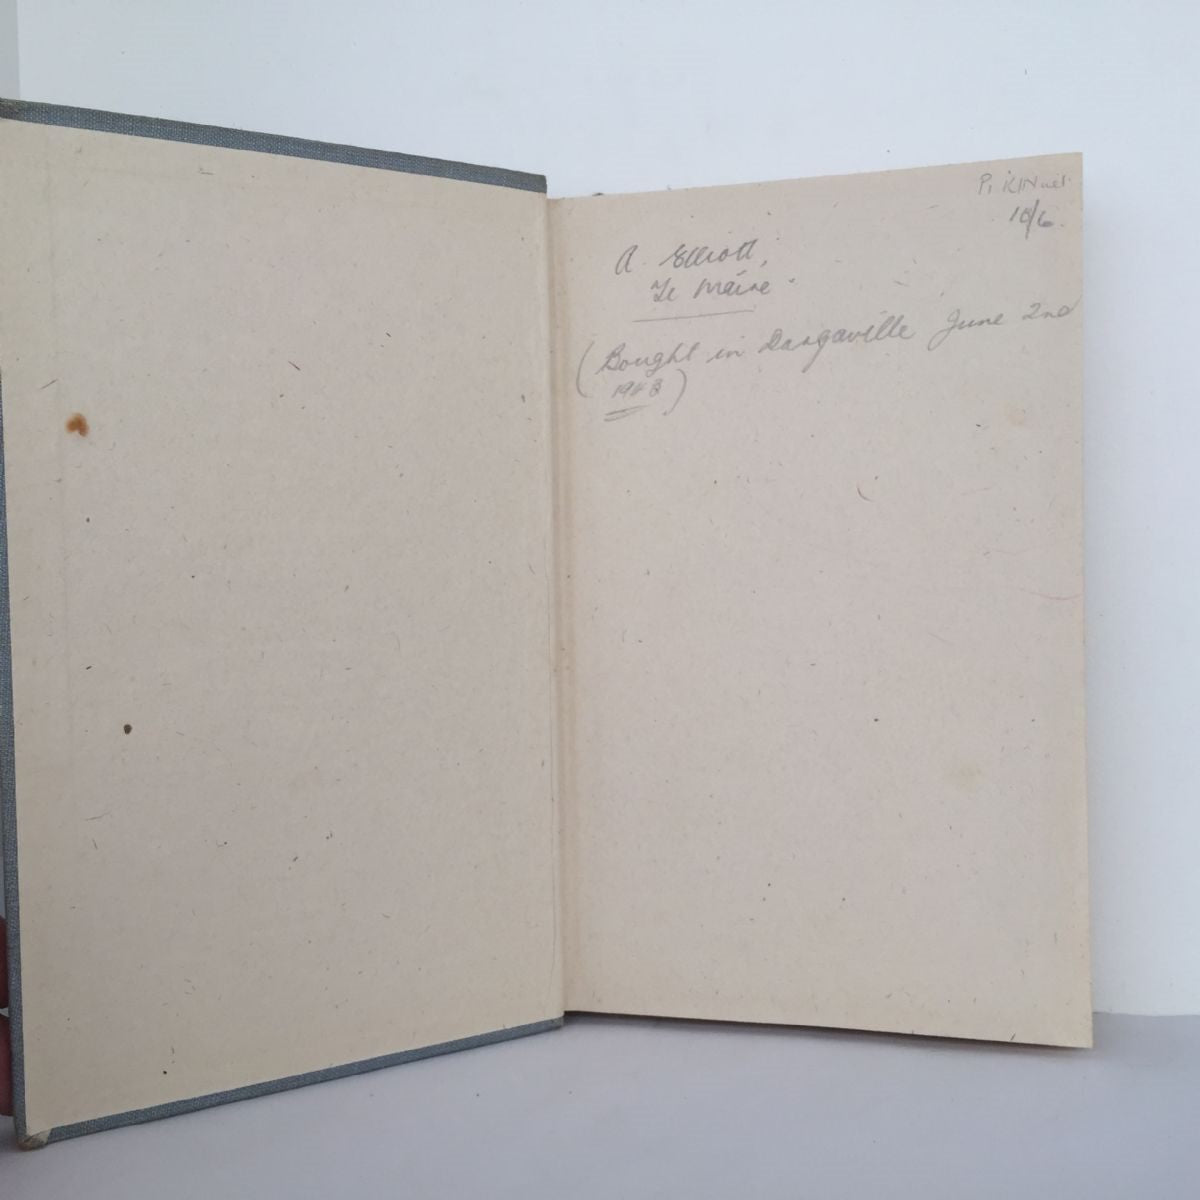 10/6.
A. Elliott,
Te Maire.
(Bought in Dargaville June 2nd
1943)